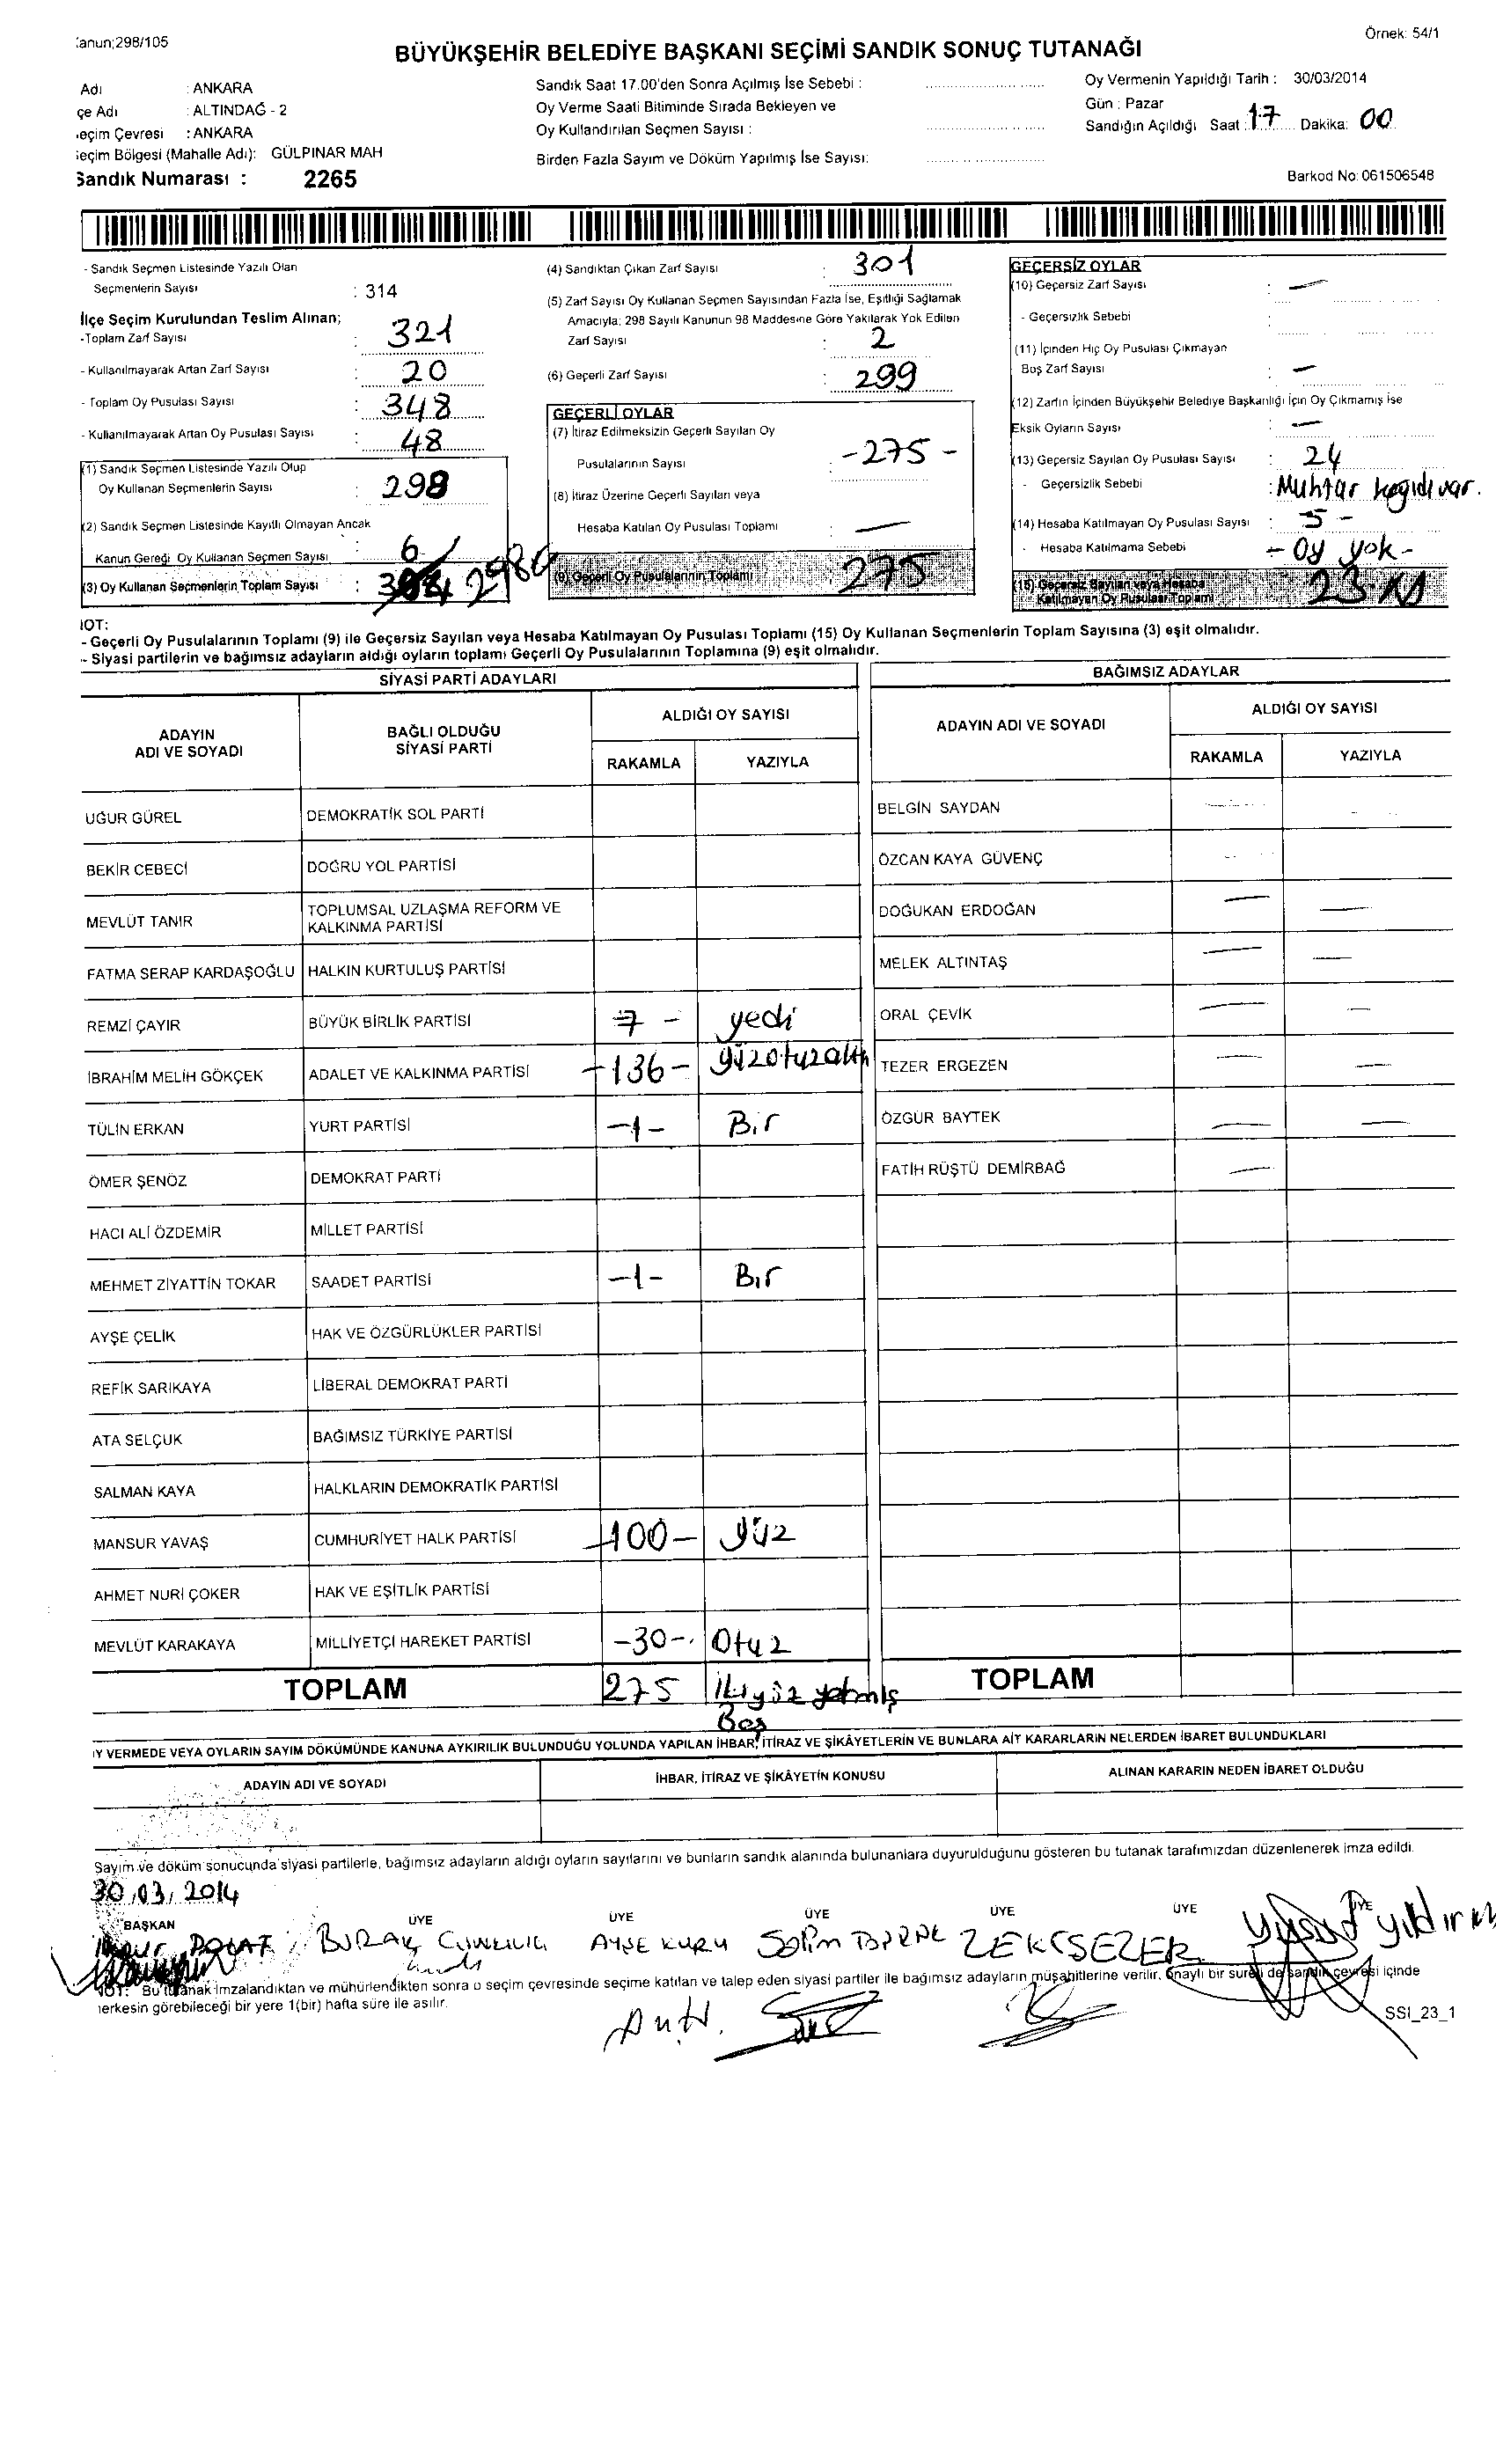 :anun;298/105
Örnek: 54/1
BÜYÜKŞEHİR BELEDİYE BAŞKANI SEÇİMİ SANDIK SONUÇ TUTANAĞI
Adı : ANKARA
çe Adı : ALTINDAĞ - 2
eçim Çevresi : ANKARA
eçim Bölgesi (Mahalle Adı): GÜLPINAR MAH
Sandık Numarası : 2265
Sandık Saat 17.00'den Sonra Açılmış İse Sebebi :
Oy Verme Saati Bitiminde Sırada Bekleyen ve
Oy Kullandırılan Seçmen Sayısı :
Birden Fazla Sayım ve Döküm Yapılmış İse Sayısı:
Oy Vermenin Yapıldığı Tarih : 30/03/2014
Gün : Pazar
Sandığın Açıldığı Saat : 17 Dakika: 00
Barkod No: 061506548
- Sandık Seçmen Listesinde Yazılı Olan
Seçmenlerin Sayısı : 314
İlçe Seçim Kurulundan Teslim Alınan;
-Toplam Zarf Sayısı : 321
- Kullanılmayarak Artan Zarf Sayısı : 20
- Toplam Oy Pusulası Sayısı : 348
- Kullanılmayarak Artan Oy Pusulası Sayısı : 48
(1) Sandık Seçmen Listesinde Yazılı Olup
Oy Kullanan Seçmenlerin Sayısı : 298
(2) Sandık Seçmen Listesinde Kayıtlı Olmayan Ancak
Kanun Gereği Oy Kullanan Seçmen Sayısı : 6
(3) Oy Kullanan Seçmenlerin Toplam Sayısı :
(4) Sandıktan Çıkan Zarf Sayısı : 301
(5) Zarf Sayısı Oy Kullanan Seçmen Sayısından Fazla İse, Eşitliği Sağlamak
Amacıyla; 298 Sayılı Kanunun 98 Maddesine Göre Yakılarak Yok Edilen
Zarf Sayısı : 2
(6) Geçerli Zarf Sayısı : 299
GEÇERLİ OYLAR
(7) İtiraz Edilmeksizin Geçerli Sayılan Oy
Pusulalarının Sayısı : -275-
(8) İtiraz Üzerine Geçerli Sayılan veya
Hesaba Katılan Oy Pusulası Toplamı : —
(9) Geçerli Oy Pusulalarının Toplamı 275
GEÇERSİZ OYLAR
(10) Geçersiz Zarf Sayısı : —
- Geçersizlik Sebebi :
(11) İçinden Hiç Oy Pusulası Çıkmayan
Boş Zarf Sayısı : —
(12) Zarfın İçinden Büyükşehir Belediye Başkanlığı İçin Oy Çıkmamış İse
Eksik Oyların Sayısı : —
(13) Geçersiz Sayılan Oy Pusulası Sayısı : 24
- Geçersizlik Sebebi : Muhtar kağıdı var.
(14) Hesaba Katılmayan Oy Pusulası Sayısı : 5 -
- Hesaba Katılmama Sebebi - Oy yok -
(15) Geçersiz Sayılan veya Hesaba
Katılmayan Oy Pusulası Toplamı
NOT:
- Geçerli Oy Pusulalarının Toplamı (9) ile Geçersiz Sayılan veya Hesaba Katılmayan Oy Pusulası Toplamı (15) Oy Kullanan Seçmenlerin Toplam Sayısına (3) eşit olmalıdır.
- Siyasi partilerin ve bağımsız adayların aldığı oyların toplamı Geçerli Oy Pusulalarının Toplamına (9) eşit olmalıdır.
SİYASİ PARTİ ADAYLARI
ADAYIN ADI VE SOYADI
BAĞLI OLDUĞU SİYASİ PARTİ
ALDIĞI OY SAYISI
RAKAMLA YAZIYLA
UĞUR GÜREL DEMOKRATİK SOL PARTİ
BEKİR CEBECİ DOĞRU YOL PARTİSİ
MEVLÜT TANIR TOPLUMSAL UZLAŞMA REFORM VE KALKINMA PARTİSİ
FATMA SERAP KARDAŞOĞLU HALKIN KURTULUŞ PARTİSİ
REMZİ ÇAYIR BÜYÜK BİRLİK PARTİSİ 7 - yedi
İBRAHİM MELİH GÖKÇEK ADALET VE KALKINMA PARTİSİ -136- yüzotuzaltı
TÜLİN ERKAN YURT PARTİSİ -1- Bir
ÖMER ŞENÖZ DEMOKRAT PARTİ
HACI ALİ ÖZDEMİR MİLLET PARTİSİ
MEHMET ZİYATTİN TOKAR SAADET PARTİSİ -1- Bir
AYŞE ÇELİK HAK VE ÖZGÜRLÜKLER PARTİSİ
REFİK SARIKAYA LİBERAL DEMOKRAT PARTİ
ATA SELÇUK BAĞIMSIZ TÜRKİYE PARTİSİ
SALMAN KAYA HALKLARIN DEMOKRATİK PARTİSİ
MANSUR YAVAŞ CUMHURİYET HALK PARTİSİ -100- yüz
AHMET NURİ ÇOKER HAK VE EŞİTLİK PARTİSİ
MEVLÜT KARAKAYA MİLLİYETÇİ HAREKET PARTİSİ -30-. Otuz
TOPLAM 275 ikiyüz yetmiş
Beş
BAĞIMSIZ ADAYLAR
ADAYIN ADI VE SOYADI
ALDIĞI OY SAYISI
RAKAMLA YAZIYLA
BELGİN SAYDAN
ÖZCAN KAYA GÜVENÇ
DOĞUKAN ERDOĞAN — —
MELEK ALTINTAŞ — —
ORAL ÇEVİK — —
TEZER ERGEZEN — —
ÖZGÜR BAYTEK — —
FATİH RÜŞTÜ DEMİRBAĞ —
TOPLAM
Y VERMEDE VEYA OYLARIN SAYIM DÖKÜMÜNDE KANUNA AYKIRILIK BULUNDUĞU YOLUNDA YAPILAN İHBAR, İTİRAZ VE ŞİKÂYETLERİN VE BUNLARA AİT KARARLARIN NELERDEN İBARET BULUNDUKLARI
ADAYIN ADI VE SOYADI
İHBAR, İTİRAZ VE ŞİKÂYETİN KONUSU
ALINAN KARARIN NEDEN İBARET OLDUĞU
Sayım ve döküm sonucunda siyasi partilerle, bağımsız adayların aldığı oyların sayılarını ve bunların sandık alanında bulunanlara duyurulduğunu gösteren bu tutanak tarafımızdan düzenlenerek imza edildi.
30.03.2014
BAŞKAN ÜYE ÜYE ÜYE ÜYE ÜYE ÜYE
POLAT BURAK AYŞE KURU ZEKİ SEZER Yusuf yıldırım
NOT: Bu tutanak imzalandıktan ve mühürlendikten sonra o seçim çevresinde seçime katılan ve talep eden siyasi partiler ile bağımsız adayların müşahitlerine verilir. Onaylı bir sureti de sandık çevresi içinde
herkesin görebileceği bir yere 1(bir) hafta süre ile asılır.
SSI_23_1